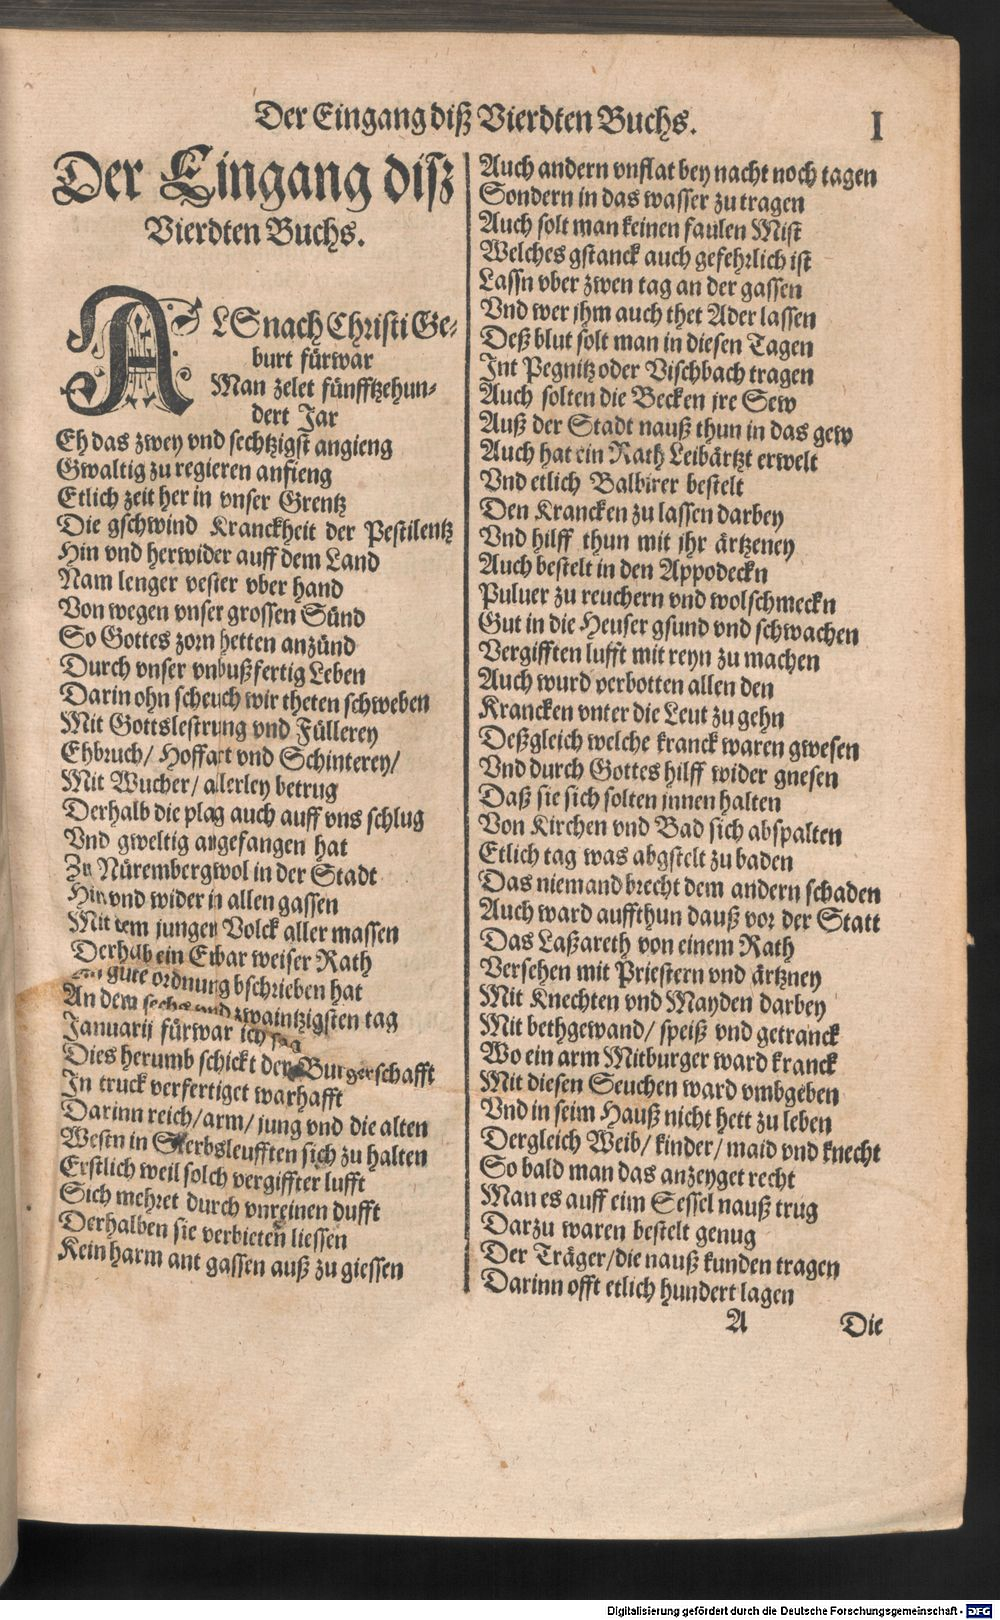 Der Eingang diß Vierdten Buchs.
I
Der Eingang diß
Vierdten Buchs.
ALS nach Christi Ge-
burt fürwar
Man zelet fünfftzehun-
dert Jar
Eh das zwey vnd sechtzigst angieng
Gwaltig zu regieren anfieng
Etlich zeit her in vnser Grentz
Die gschwind Kranckheit der Pestilentz
Hin vnd herwider auff dem Land
Nam lenger vester vber hand
Von wegen vnser grossen Sünd
So Gottes zorn hetten anzünd
Durch vnser vnbußfertig Leben
Darin ohn scheuch wir theten schweben
Mit Gottslestrung vnd Füllerey
Ehbruch/ Hoffart vnd Schinterey/
Mit Wucher/ allerley betrug
Derhalb die plag auch auff vns schlug
Vnd gweltig angefangen hat
Zu Nüremberg wol in der Stadt
Hin vnd wider in allen gassen
Mit dem jungen Volck aller massen
Derhalb ein Erbar weiser Rath
Ein güte ordnung bschrieben hat
An dem sechs vnd zwaintzigsten tag
Januarij fürwar ich sag
Dies herumb schickt der Burgerschafft
In truck verfertiget warhafft
Darinn reich/ arm/ jung vnd die alten
Westn in Sterbsleufften sich zu halten
Erstlich weil solch vergiffter lufft
Sich mehret durch vnreinen dufft
Derhalben sie verbieten liessen
Kein harm ant gassen auß zu giessen
Auch andern vnflat bey nacht noch tagen
Sondern in das wasser zu tragen
Auch solt man keinen faulen Mist
Welches gstanck auch gefehrlich ist
Lassn vber zwen tag an der gassen
Vnd wer jhm auch thet Ader lassen
Deß blut solt man in diesen Tagen
Int Pegnitz oder Vischbach tragen
Auch solten die Becken jre Sew
Auß der Stadt nauß thun in das gew
Auch hat ein Rath Leibärtzt erwelt
Vnd etlich Balbirer bestelt
Den Krancken zu lassen darbey
Vnd hilff thun mit jhr ärtzeney
Auch bestelt in den Appodeckn
Puluer zu reuchern vnd wolschmeckn
Gut in die Heuser gsund vnd schwachen
Vergifften lufft mit reyn zu machen
Auch wurd verbotten allen den
Krancken vnter die Leut zu gehn
Deßgleich welche kranck waren gwesen
Vnd durch Gottes hilff wider gnesen
Daß sie sich solten jnnen halten
Von Kirchen vnd Bad sich abspalten
Etlich tag was abgstelt zu baden
Das niemand brecht dem andern schaden
Auch ward auffthun dauß vor der Statt
Das Laßareth von einem Rath
Versehen mit Priestern vnd ärtzney
Mit Knechten vnd Mayden darbey
Mit bethgewand/ speiß vnd getranck
Wo ein arm Mitburger ward kranck
Mit diesen Seuchen ward vmbgeben
Vnd in seim Hauß nicht hett zu leben
Dergleich Weib/ kinder/ maid vnd knecht
So bald man das anzeyget recht
Man es auff eim Sessel nauß trug
Darzu waren bestelt genug
Der Träger/ die nauß kunden tragen
Darinn offt etlich hundert lagen
A
Die
Digitalisierung gefördert durch die Deutsche Forschungsgemeinschaft - DFG